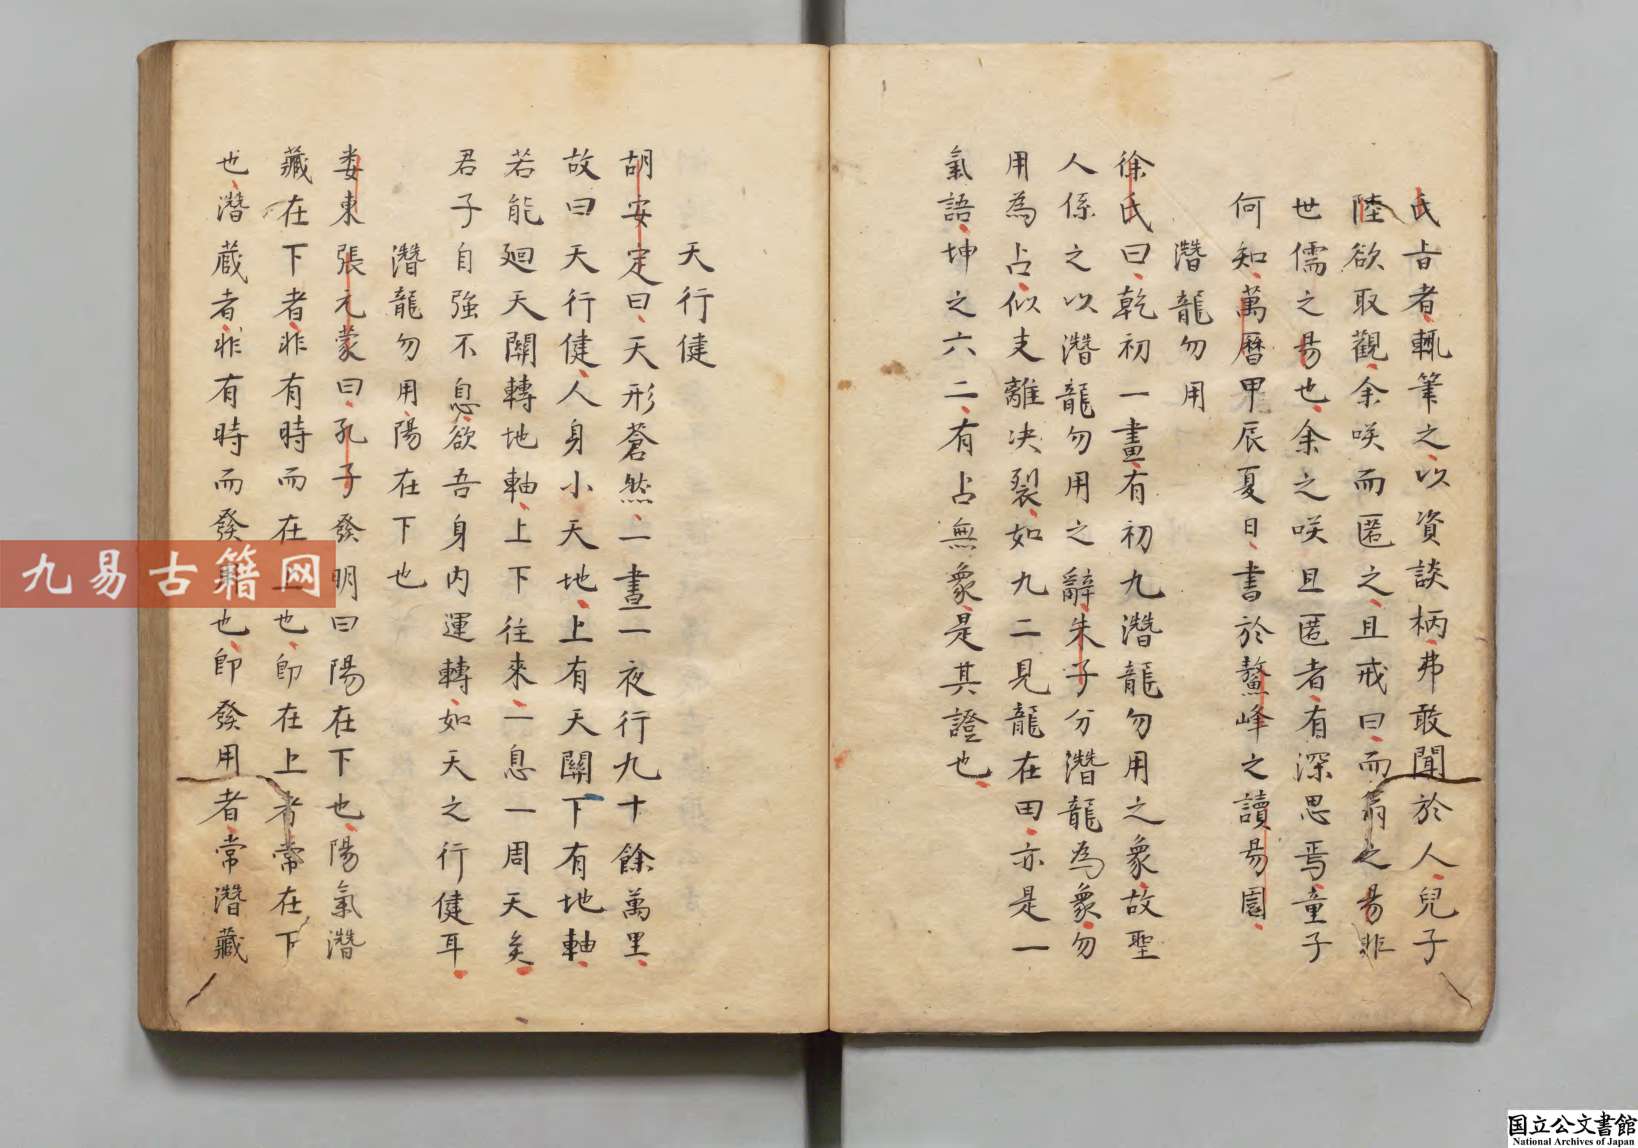 氏旨者輒筆之以資談柄弗敢聞於人兒子
陸欲取觀余咲而匿之且戒曰而翁之昜非
世儒之昜也余之咲且匿者有深思焉童子
何知萬曆甲辰夏日書於鰲峰之讀昜園
潛龍勿用
徐氏曰乾初一畫有初九潛龍勿用之象故聖
人係之以潛龍勿用之辭朱子分潛龍為象勿
用為占似支離决裂如九二見龍在田亦是一
氣語坤之六二有占無象是其證也
天行健
胡安定曰天形蒼然一晝一夜行九十餘萬里
故曰天行健人身小天地上有天關下有地軸
若能廻天關轉地軸上下往來一息一周天矣
君子自強不息欲吾身内運轉如天之行健耳
潛龍勿用陽在下也
婁東張元蒙曰孔子發明曰陽在下也陽氣潛
藏在下者非有時而在上也卽在上者常在下
也潛蔵者非有時而發用也卽發用者常潛藏
九易古籍网
国立公文書館
National Archives of Japan